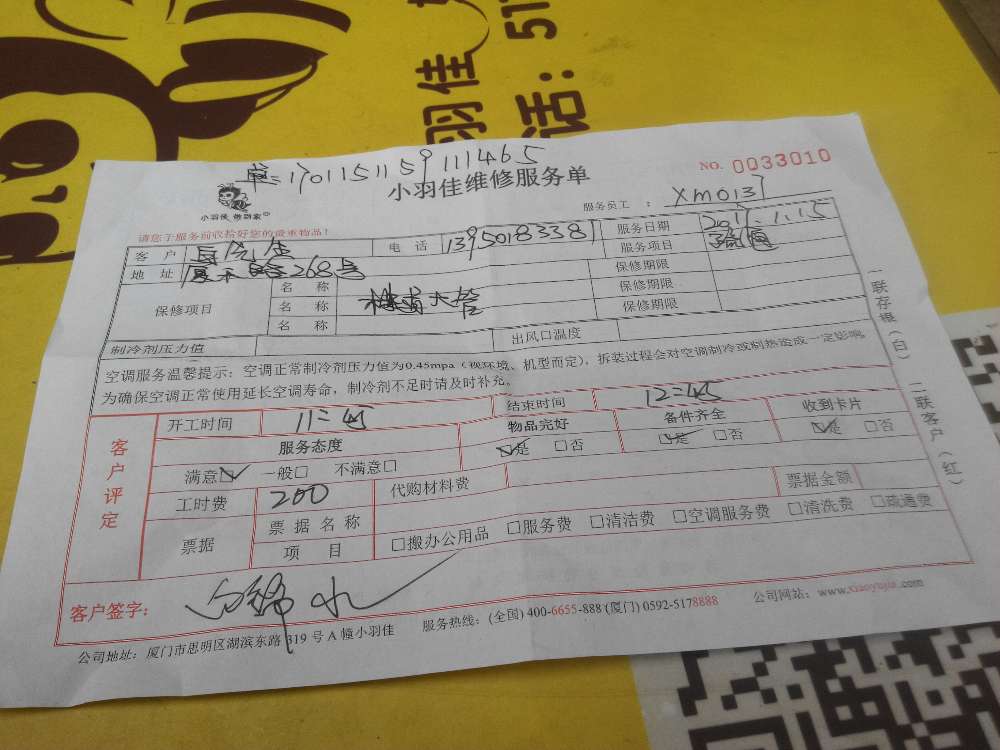 小羽佳
话: 51
单: 170115115911465
NO. 0033010
小羽佳维修服务单
小羽佳 做到家
服务员工 : XM0137
请您于服务前收拾好您的贵重物品!
客 户 电 话 13950183381 服务日期 2017.1.15
地 址 厦禾路268号 服务项目 疏通
保修项目 名 称 保修期限
名 称 大管 保修期限
名 称 保修期限
制冷剂压力值 出风口温度
空调服务温馨提示: 空调正常制冷剂压力值为0.45mpa (视环境、机型而定), 拆装过程会对空调制冷或制热造成一定影响,
为确保空调正常使用延长空调寿命, 制冷剂不足时请及时补充。
一联存根(白) 二联客户(红)
客户评定
开工时间 11:45 结束时间 12:45
服务态度 物品完好 备件齐全 收到卡片
满意☑ 一般□ 不满意□ ☑是 □否 ☑是 □否 ☑是 □否
工时费 200 代购材料费 票据金额
票据 票据名称
项 目 □搬办公用品 □服务费 □清洁费 □空调服务费 □清洗费 □疏通费
客户签字:
公司地址: 厦门市思明区湖滨东路319号A幢小羽佳 服务热线: (全国) 400-6655-888 (厦门) 0592-5178888 公司网站: www.xiaoyujia.com